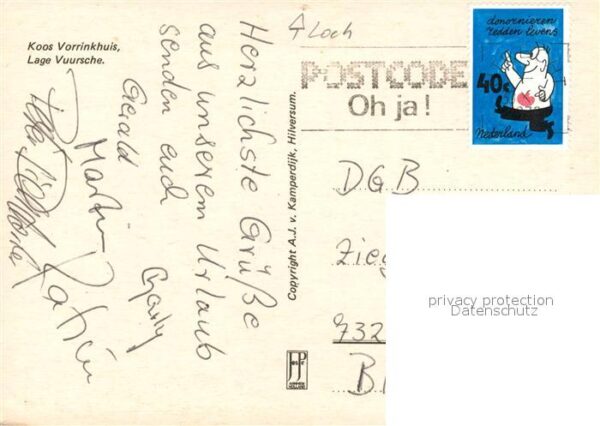 Koos Vorrinkhuis,
Lage Vuursche.
Herzlichste Grüße
aus unserem Urlaub
senden euch
Gerald
Martin
Charly
Patrick
Copyright A.J. v. Kamperdijk, Hilversum.
POSTCODE
Oh ja!
donornieren
redden levens
40c
Nederland
DGB
Zieg
732
B
privacy protection
Datenschutz
JosPé